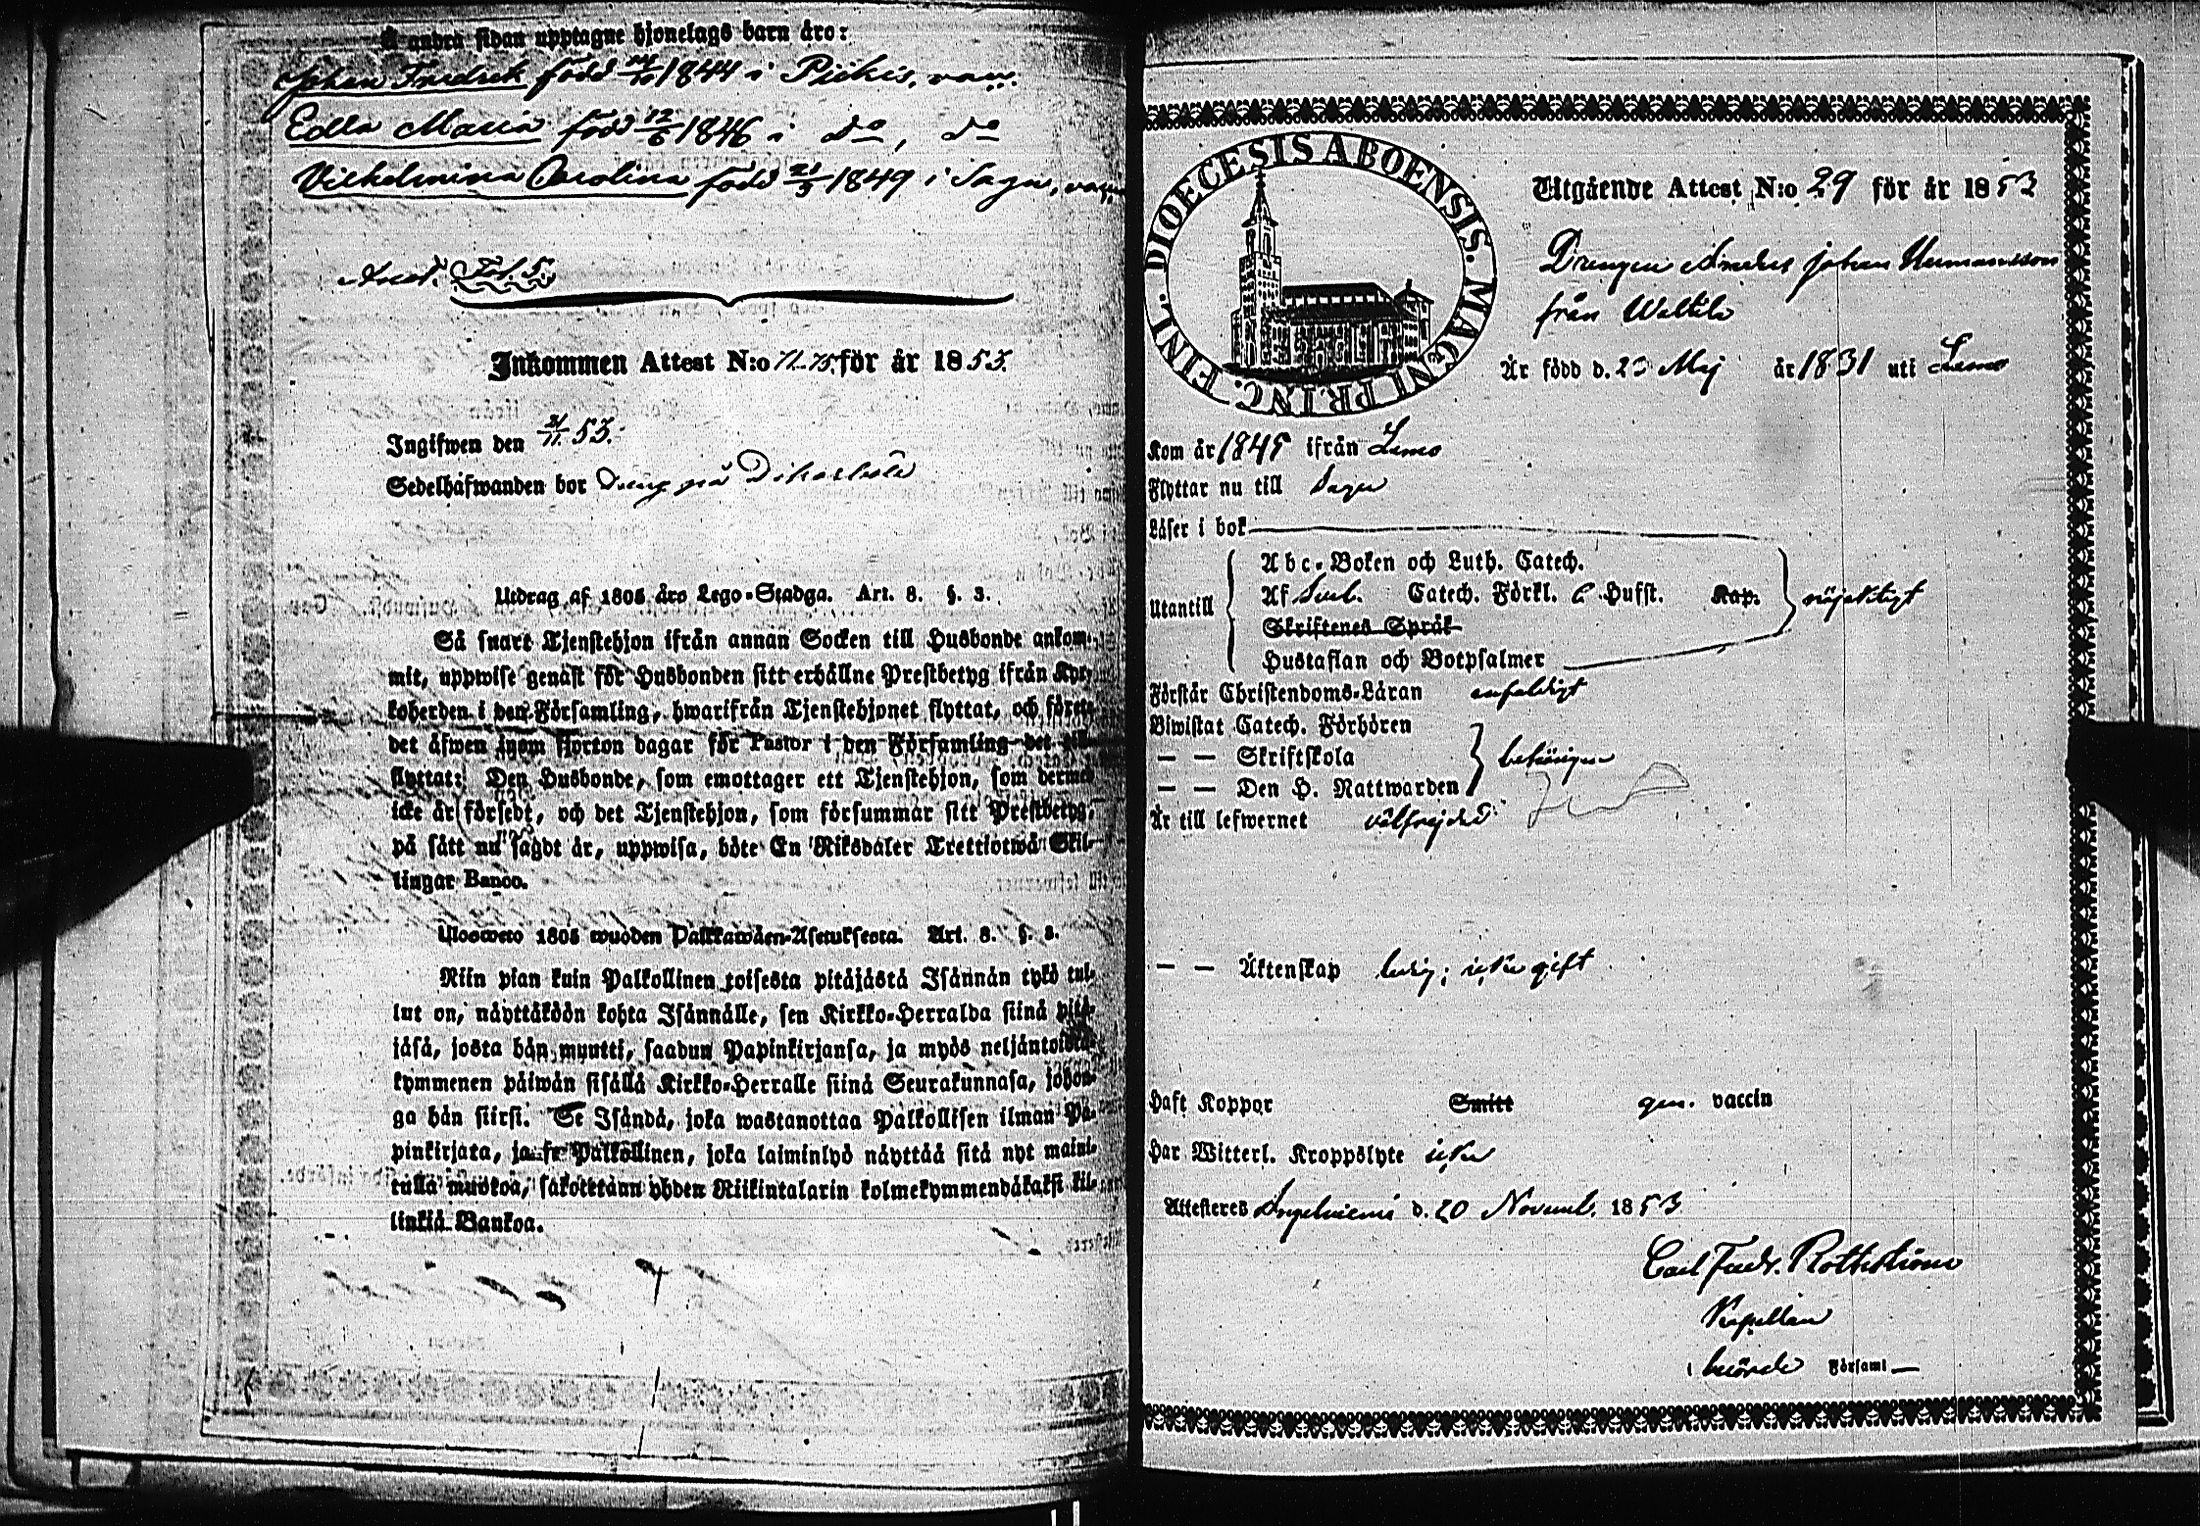 Å andra sidan upptagne hjonelags barn äro:
Johan Fredrik född 14/10 1844 i Piikis, vacc.
Edla Maria född 12/6 1846 i do, do
Vilhelmina Carolina född 21/3 1849 i Sagu, vacc.
Fol. 5.
Inkommen Attest N:o 71-75. för år 1853.
Ingifwen den 21/11 53.
Sedelhafwanden bor Dreng på Dikarböle
Utdrag af 1805 års Lego-Stadga. Art. 8. §. 3.
Så snart Tjenstehjon ifrån annan Socken till Husbonde ankom-
mit, uppwise genast för Husbonden sitt erhållne Prestbetyg ifrån Kyr-
koherden i den Församling, hwarifrån Tjenstehjonet flyttat, och förete
det äfwen inom fjorton dagar för Pastor i den Församling det till-
flyttat: Den Husbonde, som emottager ett Tjenstehjon, som dermed
icke är försedt, och det Tjenstehjon, som försummar sitt Prestbetyg,
på sätt nu sagdt är, uppwisa, böte En Riksdaler Trettiotwå Skil-
lingar Banco.
Ulosweto 1805 wuoden Palkkawäen-Asetuksesta. Art. 8. §. 3.
Niin pian kuin Palkollinen toisesta pitäjästä Isännän tykö tul-
lut on, näyttäköön kohta Isännälle, sen Kirkko-Herralda siinä pitä-
jäsä, josta hän muutti, saadun Papinkirjansa, ja myös neljäntoista-
kymmenen päiwän sisällä Kirkko-Herralle siinä Seurakunnasa, johon-
ga hän siirsi. Se Isändä, joka wastanottaa Palkollisen ilman Pa-
pinkirjata, ja se Palkollinen, joka laiminlyö näyttää sitä nyt maini-
tulla muotoa, sakotetann yhden Riikintalarin kolmekymmendäkaksi kil-
linkiä Bankoa.
DIOECESIS ABOENSIS. MAGNI PRINC. FINL.
Utgående Attest N:o 29 för år 1853
Drengen Anders Johan Hermansson
från Wattila
Är född d. 23 Maj år 1831 uti Lemo
Kom år 1845 ifrån Lemo
Flyttar nu till Sagu
Läser i bok
Abc-Boken och Luth. Catech.
Utantill Af Sveb. Catech. Förkl. 6 Hufst. Kap. nöjaktigt
Skriftenes Språk
Hustaflan och Botpsalmer
Förstår Christendoms-Läran enfaldigt
Biwistat Catech. Förhören
— — Skriftskola behörigen
— — Den H. Nattwarden
Är till lefwernet välfrejdad
— — Äktenskap ledig; icke gift
Haft Koppor Smitt gen. vaccin
Har Witterl. Kroppslyte icke
Attesteres Angelniemi d. 20 Novemb. 1853
Carl Fredr. Rothström
Kapellan
i berörde Församl—